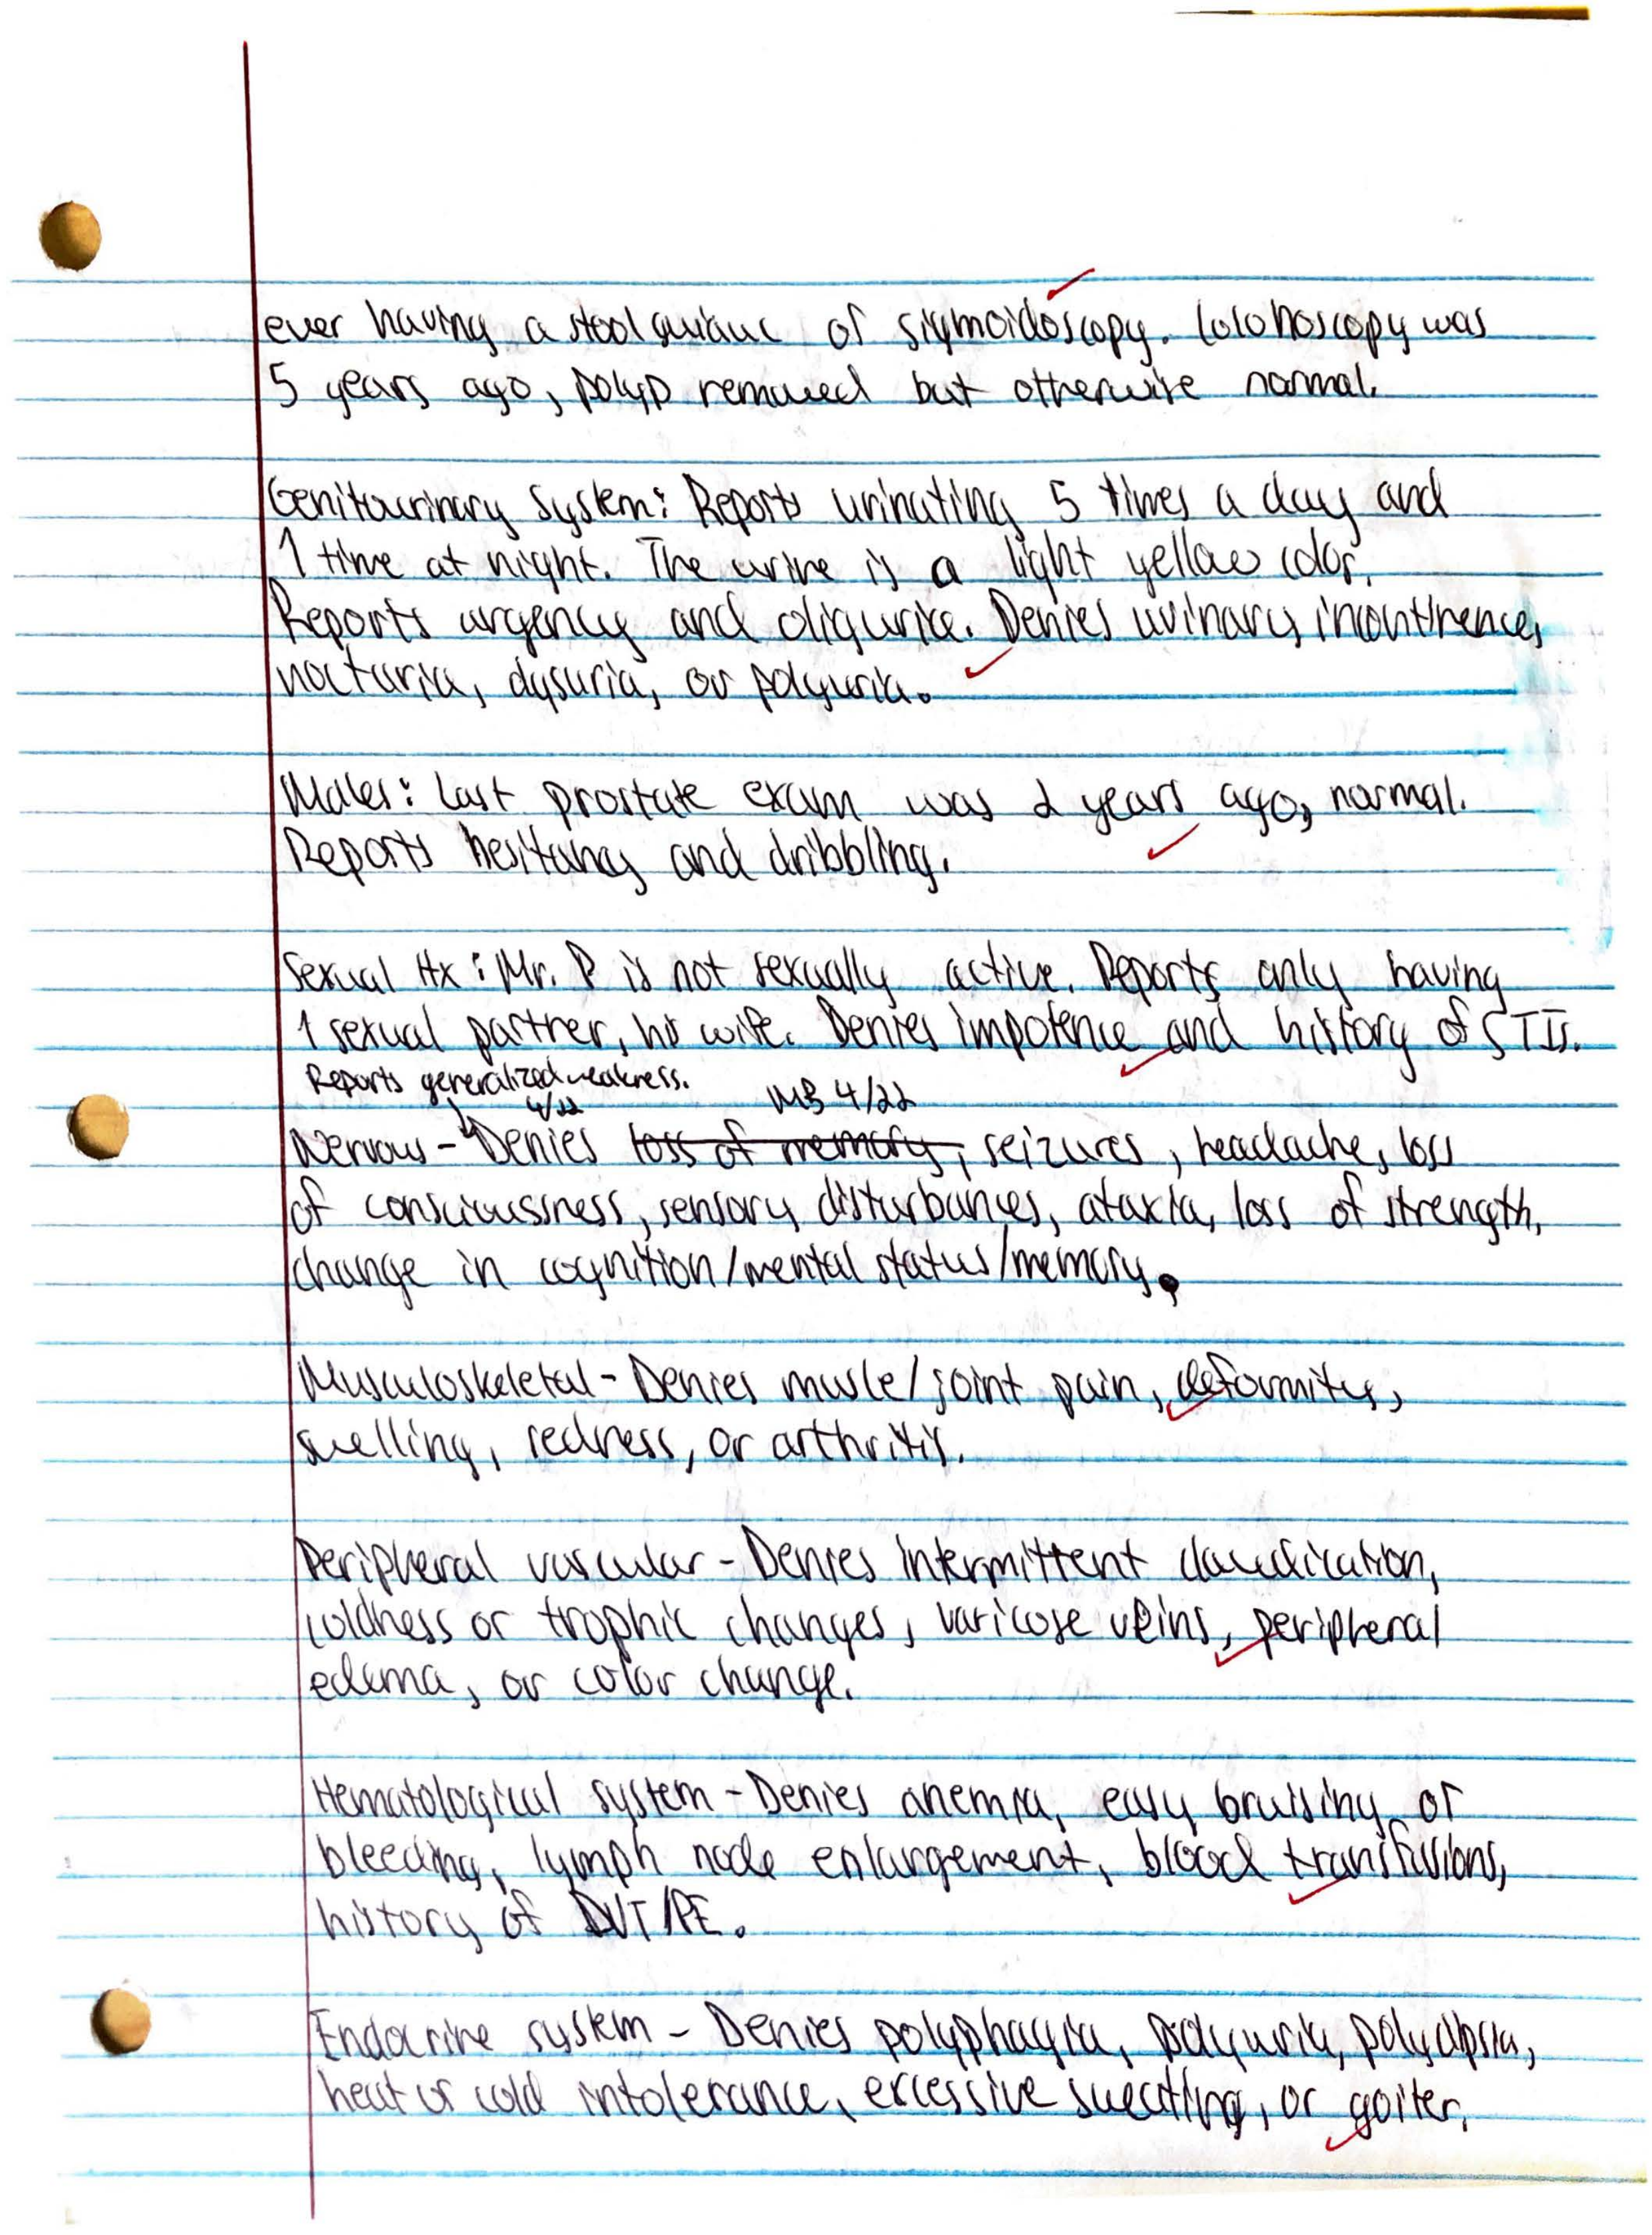 ever having a stool guiauc of sigmoidoscopy. Colonoscopy was
5 years ago, polyp removed but otherwise normal.
Genitourinary System: Reports urinating 5 times a day and
1 time at night. The urine is a light yellow color.
Reports urgency and oliguria. Denies urinary incontinence,
nocturia, dysuria, or polyuria.
Males: Last prostate exam was 2 years ago, normal.
Reports hesitancy and dribbling.
Sexual Hx: Mr. P is not sexually active. Reports only having
1 sexual partner, his wife. Denies impotence and history of STIs.
Reports generalized weakness.
4/22 MB 4/22
Nervous - Denies loss of memory, seizures, headache, loss
of consciousness, sensory disturbances, ataxia, loss of strength,
change in cognition/mental status/memory.
Musculoskeletal - Denies muscle/joint pain, deformity,
swelling, redness, or arthritis.
Peripheral vascular - Denies intermittent claudication,
coldness or trophic changes, varicose veins, peripheral
edema, or color change.
Hematological system - Denies anemia, easy bruising or
bleeding, lymph node enlargement, blood transfusions,
history of DVT/PE.
Endocrine system - Denies polyphagia, polyuria, polydipsia,
heat or cold intolerance, excessive sweating, or goiter.